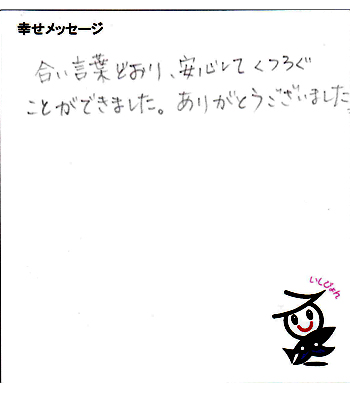 幸せメッセージ
合い言葉どおり、安心してくつろぐ
ことができました。ありがとうございました。
いしぴょん